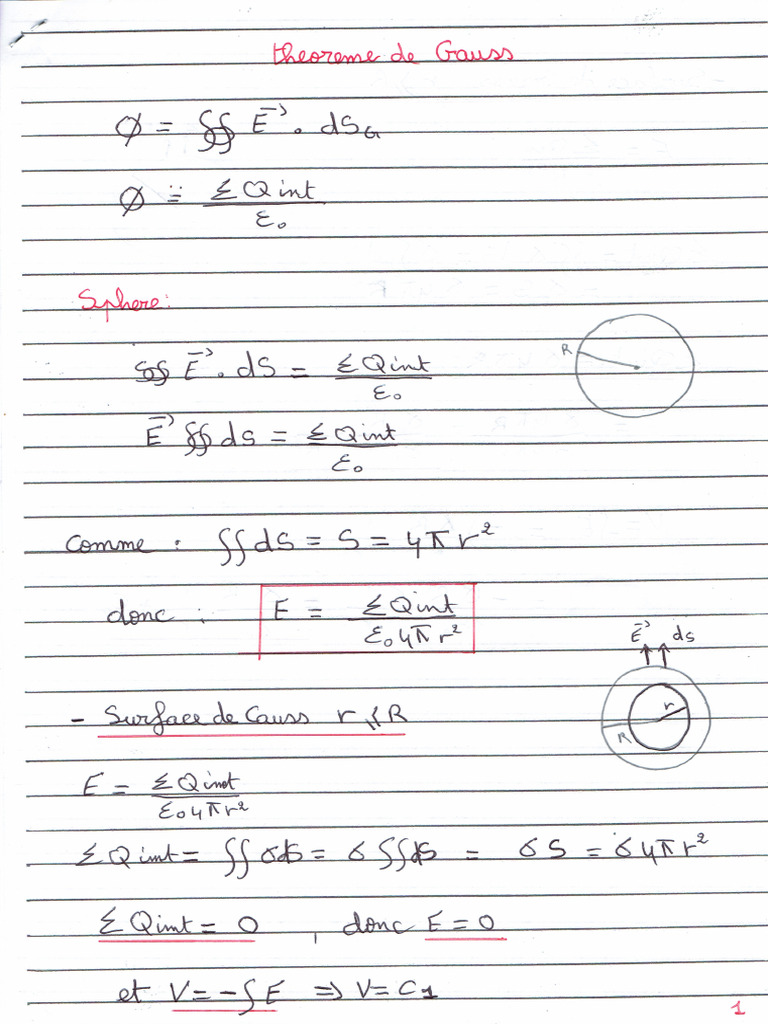 theoreme de Gauss
∅ = ∯ E⃗ . dS_G
∅ = ΣQint / ε₀
Sphere:
R
∯ E⃗ . dS = ΣQint / ε₀
E⃗ ∯ ds = ΣQint / ε₀
Comme : ∬ dS = S = 4πr²
donc : E = ΣQint / ε₀4πr²
E⃗ ds
- Surface de Gauss r ≤ R
r
R
E = ΣQint / ε₀4πr²
ΣQint = ∬ σds = σ∬ds = σS = σ4πr²
ΣQint = 0 , donc E = 0
et V = -∫E ⇒ V = C1
1